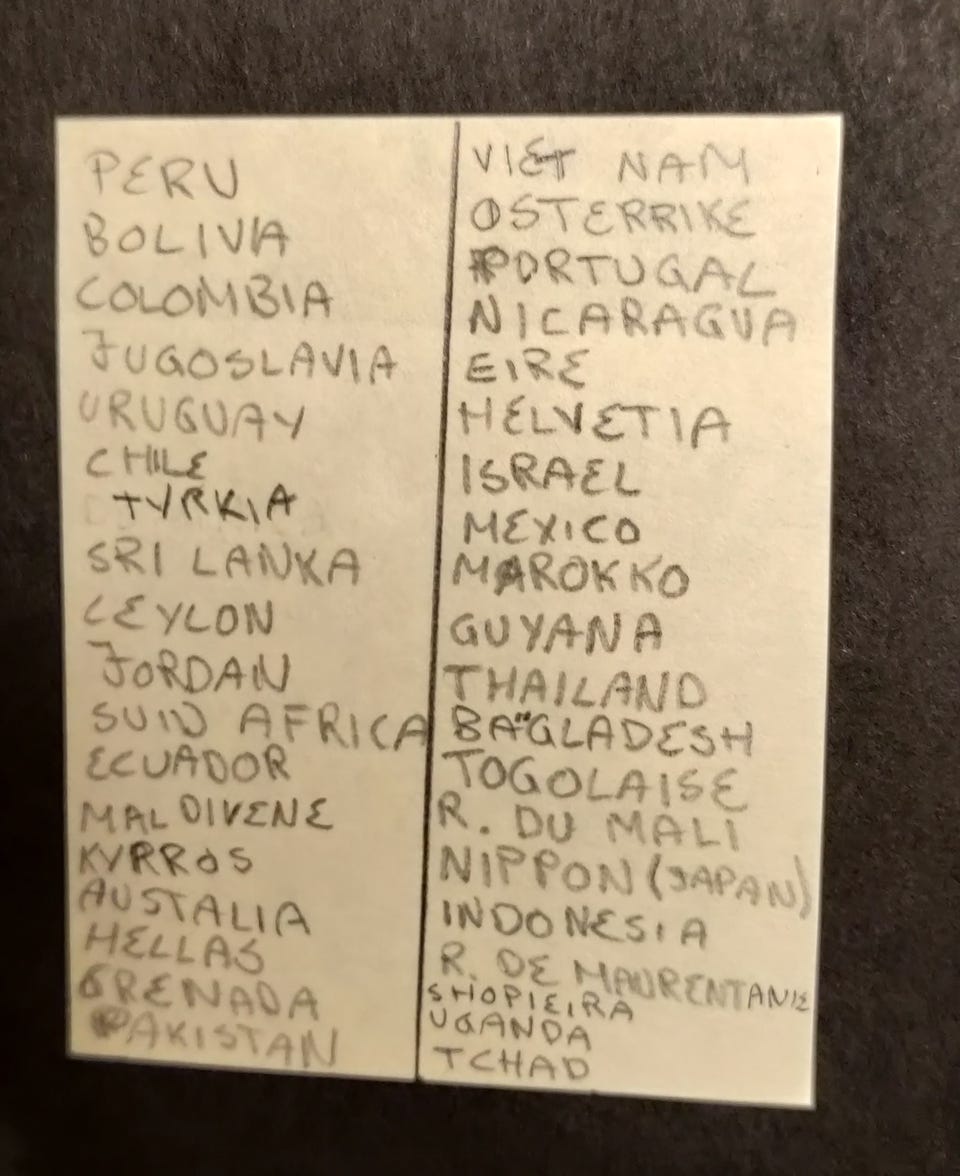 PERU
BOLIVIA
COLOMBIA
JUGOSLAVIA
URUGUAY
CHILE
TYRKIA
SRI LANKA
CEYLON
JORDAN
SUID AFRICA
ECUADOR
MALDIVENE
KYRROS
AUSTALIA
HELLAS
GRENADA
PAKISTAN
VIET NAM
OSTERRIKE
PORTUGAL
NICARAGUA
EIRE
HELVETIA
ISRAEL
MEXICO
MAROKKO
GUYANA
THAILAND
BA"GLADESH
TOGOLAISE
R. DU MALI
NIPPON (JAPAN)
INDONESIA
R. DE MAURENTANIE
SHOPIEIRA
UGANDA
TCHAD